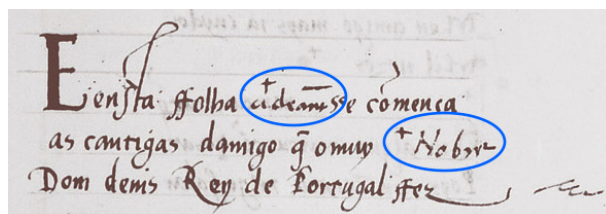 E ensta ffolha adeãnte sse comença
as cantigas damigo q̃ o muy Nobre
Dom denis Rey de Portugal ffez